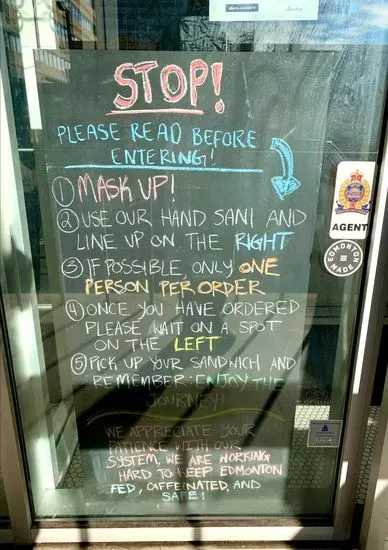 STOP!
PLEASE READ BEFORE
ENTERING!
① MASK UP!
② USE OUR HAND SANI AND
LINE UP ON THE RIGHT
③ IF POSSIBLE, ONLY ONE
PERSON PER ORDER
④ ONCE YOU HAVE ORDERED
PLEASE WAIT ON A SPOT
ON THE LEFT
⑤ PICK UP YOUR SANDWICH AND
REMEMBER: ENJOY THE
JOURNEY!
WE APPRECIATE YOUR
PATIENCE WITH OUR
SYSTEM, WE ARE WORKING
HARD TO KEEP EDMONTON
FED, CAFFEINATED, AND
SAFE!
AGENT
EDMONTON
MADE